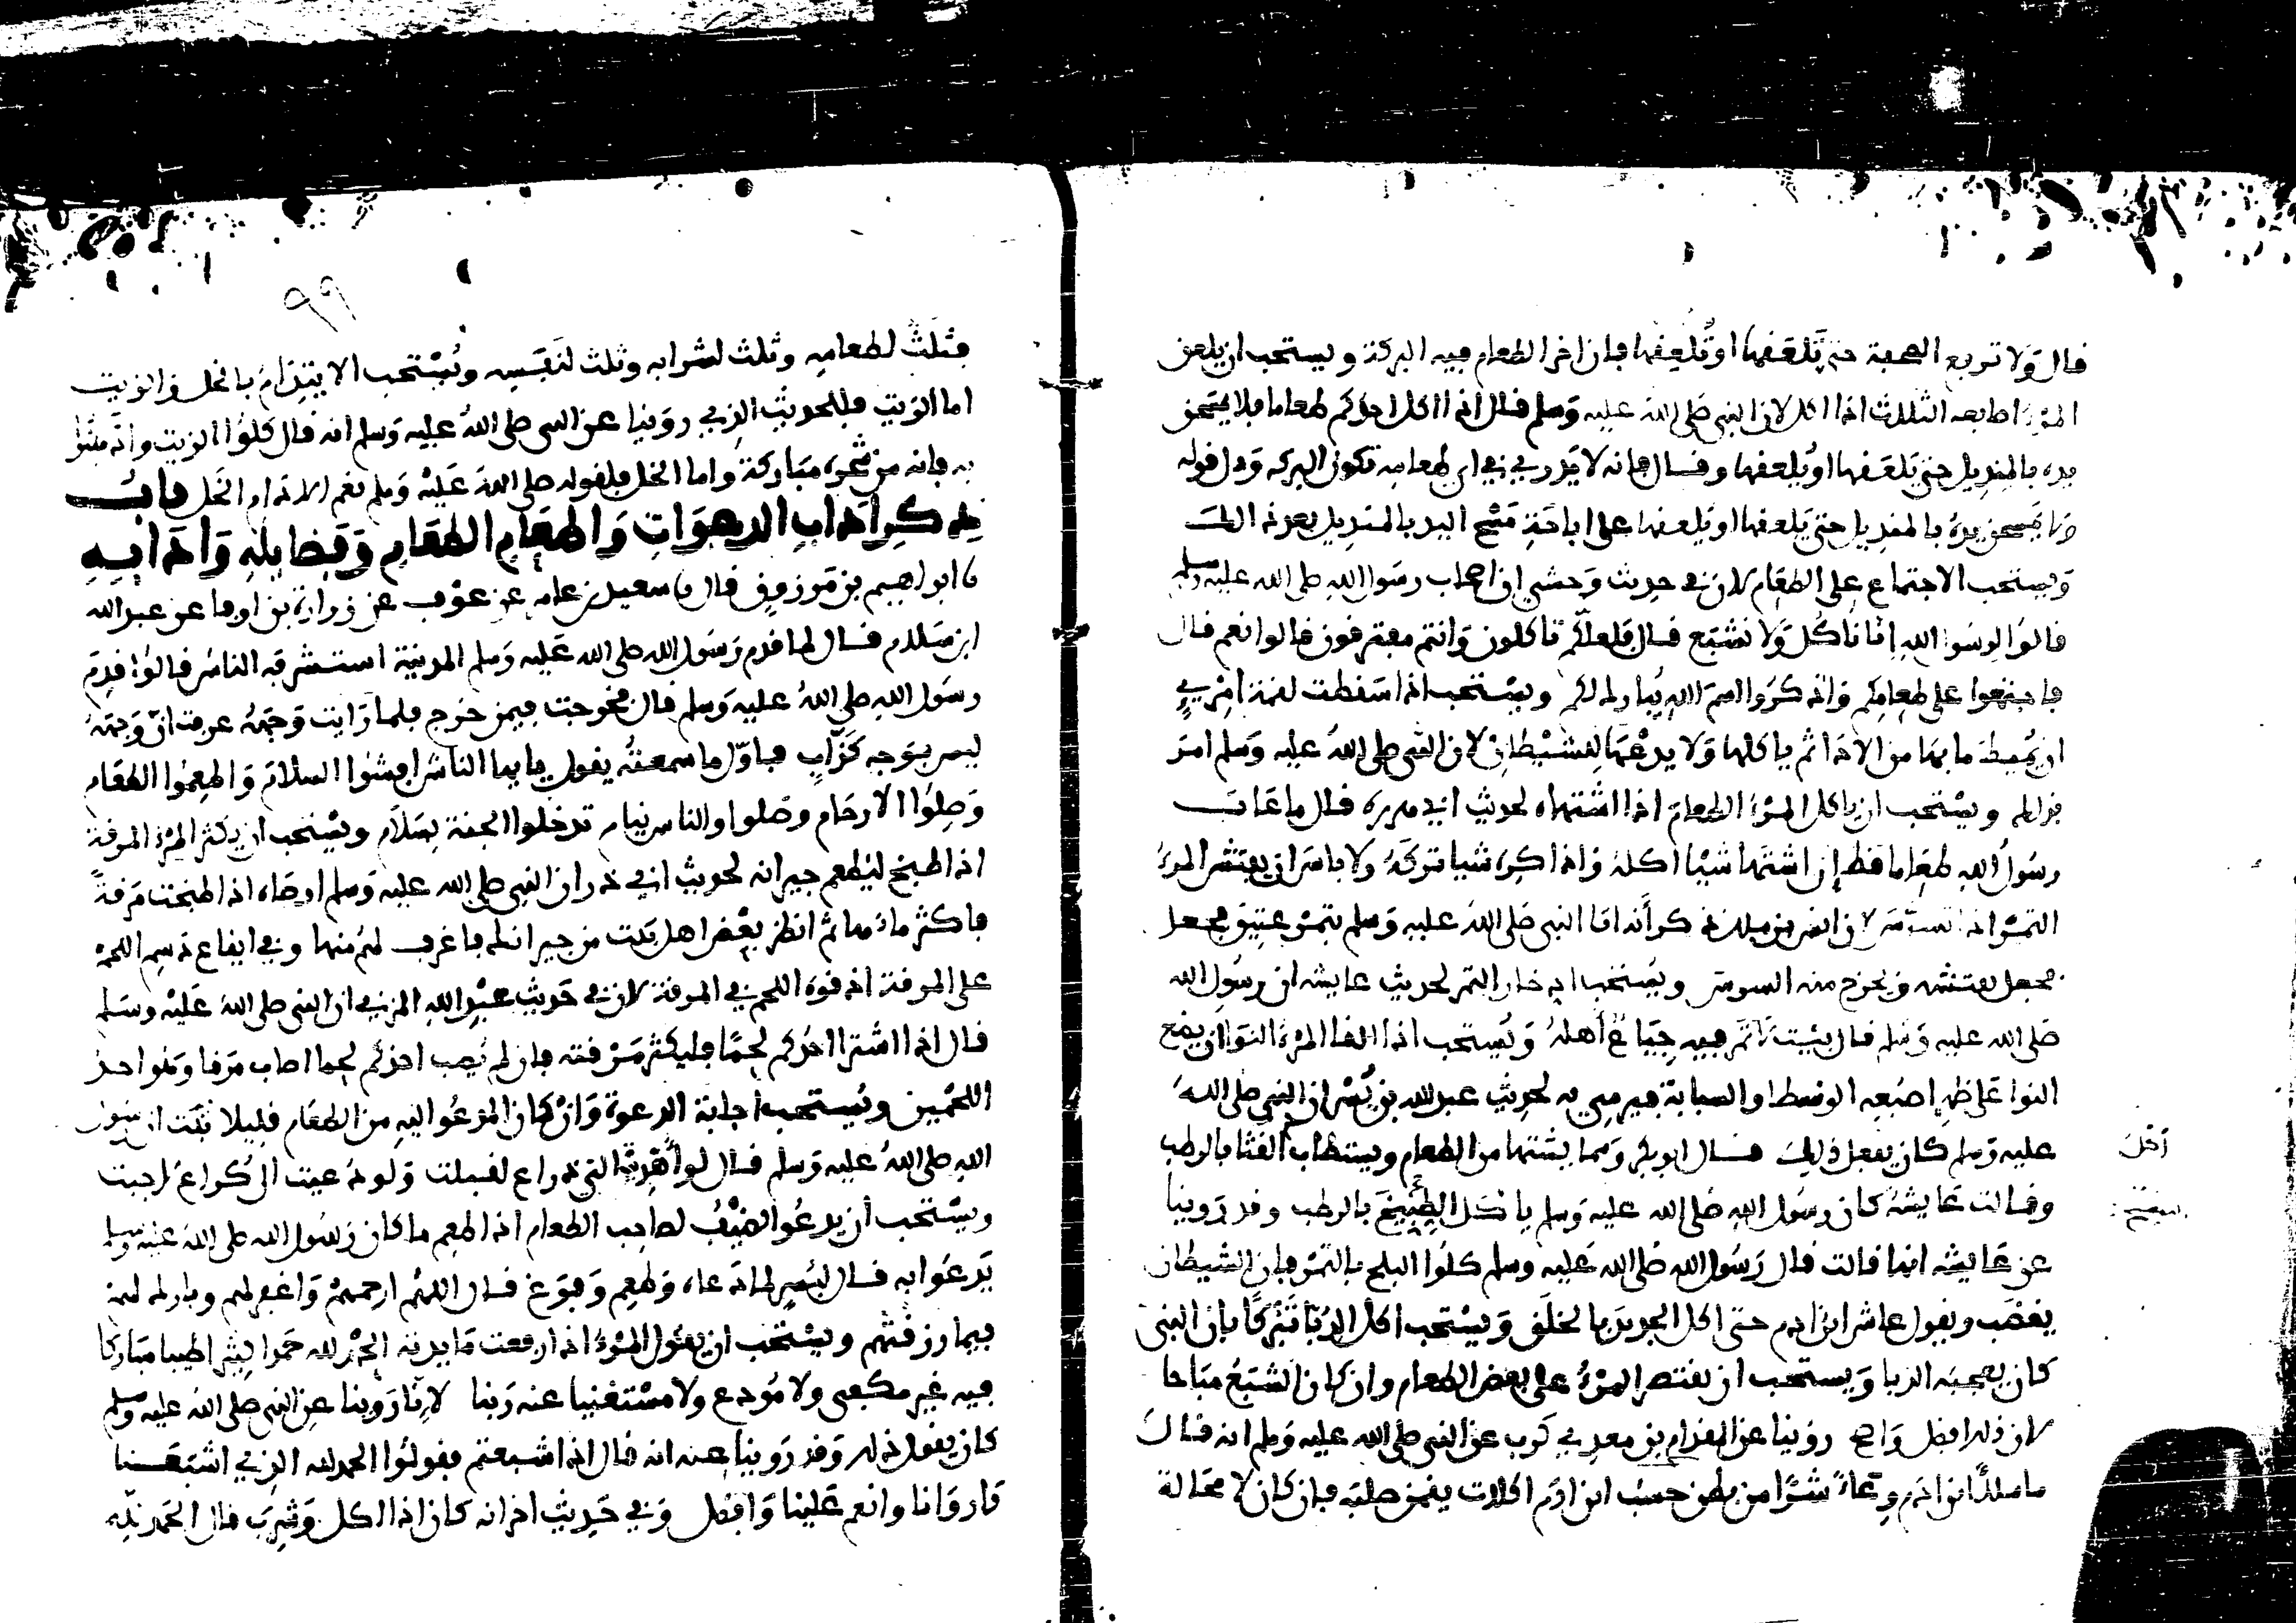 قال ولا ترفع الصحفة حتى تلعقها او تلعقها فإن اخر الطعام فيه البركة ويستحب ان يلعق
المرء اصابعه الثلاث اذا اكل لان النبي صلى الله عليه وسلم قال اذا اكل احدكم طعاما فلا يمسحن
يده بالمنديل حتى يلعقها او يلعقها وقال فإنه لا يدري في اي طعامه تكون البركه ودل قوله
لا يمسحن يده بالمنديل حتى يلعقها او يلعقها على اباحة مسح اليد بالمنديل بعد ذلك
ويستحب الاجتماع على الطعام لان في حديث وحشي ان اصحاب رسول الله صلى الله عليه وسلم
قالوا لرسول الله إنا ناكل ولا نشبع قال فلعلكم تاكلون وانتم مفترقون قالوا نعم قال
فاجتمعوا على طعامكم واذكروا اسم الله يبارك لكم ويستحب اذا سقطت لقمة امرئ
ان يميط ما بها من الاذا ثم ياكلها ولا يدعها للشيطان لان النبي صلى الله عليه وسلم امر
بذلك ويستحب ان ياكل المرء الطعام اذا اشتهاه لحديث ابي هريرة قال ما عاب
رسول الله طعاما قط إن اشتها شيا اكله واذا كره شيا تركه ولا باس ان يفتش المرء
التمر اذا لان انس بن ملك ذكر أنه اتا النبي صلى الله عليه وسلم بتمر عتيق فجعل
فجعل يفتشه ويخرج منه السوس ويستحب ادخار التمر لحديث عايشه ان رسول الله
صلى الله عليه وسلم قال بيت لا تمر فيه جياع أهله ويستحب اذا القا المرء النوا ان يضع
النوا على ظهر اصبعه الوسطا والسبابة فيرمي به لحديث عبد الله بن بسر ان النبي صلى الله
عليه وسلم كان يفعل ذلك قال ابو بكر ومما يشتها من الطعام ويستطاب أكل القثا بالرطب
وقالت عايشه كان رسول الله صلى الله عليه وسلم ياكل الطبيخ بالرطب وقد روينا
عن عايشه انها قالت قال رسول الله صلى الله عليه وسلم كلوا البلح بالتمر فإن الشيطان
يغضب ويقول عاش ابن ادم حتى اكل الجديد بالخلق ويستحب اكل الدبا تبركا بان النبي
كان يعجبه الدبا ويستحب ان يقتصر المرء على بعض الطعام وان كان الشبع مباحا
لان ذلك افضل واصح روينا عن المقدام بن معدي كرب عن النبي صلى الله عليه وسلم انه قال
ما ملأ ابن ادم وعاء شرا من بطن حسب ابن ادم اكلات يقمن صلبه فإن كان لا محالة
فثلث لطعامه وثلث لشرابه وثلث لنفسه ويستحب الايتدام بالخل والزيت
اما الزيت فللحديث الذي روينا عن النبي صلى الله عليه وسلم انه قال كلوا الزيت وادهنوا
به فإنه من شجرة مباركة واما الخل فلقوله صلى الله عليه وسلم نعم الادام الخل باب
ذكر اداب الدعوات واطعام الطعام وفضايله وادابه
نا ابراهيم بن مرزوق قال نا سعيد بن عامر عن عوف عن زرارة بن اوفا عن عبد الله
ابن سلام قال لما قدم رسول الله صلى الله عليه وسلم المدينة استشرفه الناس فقالوا قدم
رسول الله صلى الله عليه وسلم قال فخرجت فيمن خرج فلما رايت وجهه عرفت ان وجهه
ليس بوجه كذاب فاول ما سمعته يقول يا يها الناس افشوا السلام واطعموا الطعام
وصلوا الارحام وصلوا والناس نيام تدخلوا الجنة بسلام ويستحب ان يكثر المرء المرقة
اذا طبخ ليطعم جيرانه لحديث ابي ذر ان النبي صلى الله عليه وسلم اوصاه اذا طبخت مرقة
فاكثر ماءها ثم انظر بعض اهل بيت من جيرانك فاغرف لهم منها وفي ايقاع اسم اللحم
على المرقة اذ قوة اللحم في المرقة لان في حديث عبد الله المزني ان النبي صلى الله عليه وسلم
قال اذا اشترا احدكم لحما فليكثر مرقته فإن لم يصب احدكم لحما اصاب مرقا وهو احد
اللحمين ويستحب اجابة الدعوة وان كان المدعو اليه من الطعام قليلا ثبت ان رسول
الله صلى الله عليه وسلم قال لو أهديت الي ذراع لقبلت ولو دعيت الى كراع لاجبت
ويستحب أن يدعو الضيف لصاحب الطعام اذا طعم ما كان رسول الله صلى الله عليه وسلم
يدعوا به قال لبسر لما دعاه وطعم وفرغ قال اللهم ارحمهم واغفر لهم وبارك لهم
فيما رزقتهم ويستحب ان يقول المرء اذا رفعت مايدته الحمد لله حمدا كثيرا طيبا مباركا
فيه غير مكفي ولا مودع ولا مستغنيا عنه ربنا لإنا روينا عن النبي صلى الله عليه وسلم
كان يقول ذلك وقد روينا عنه انه قال اذا شبعتم فقولوا الحمد لله الذي اشبعنا
واروانا وانعم علينا وافضل وفي حديث اخر انه كان اذا اكل وشرب قال الحمد لله
أكل
٩٩